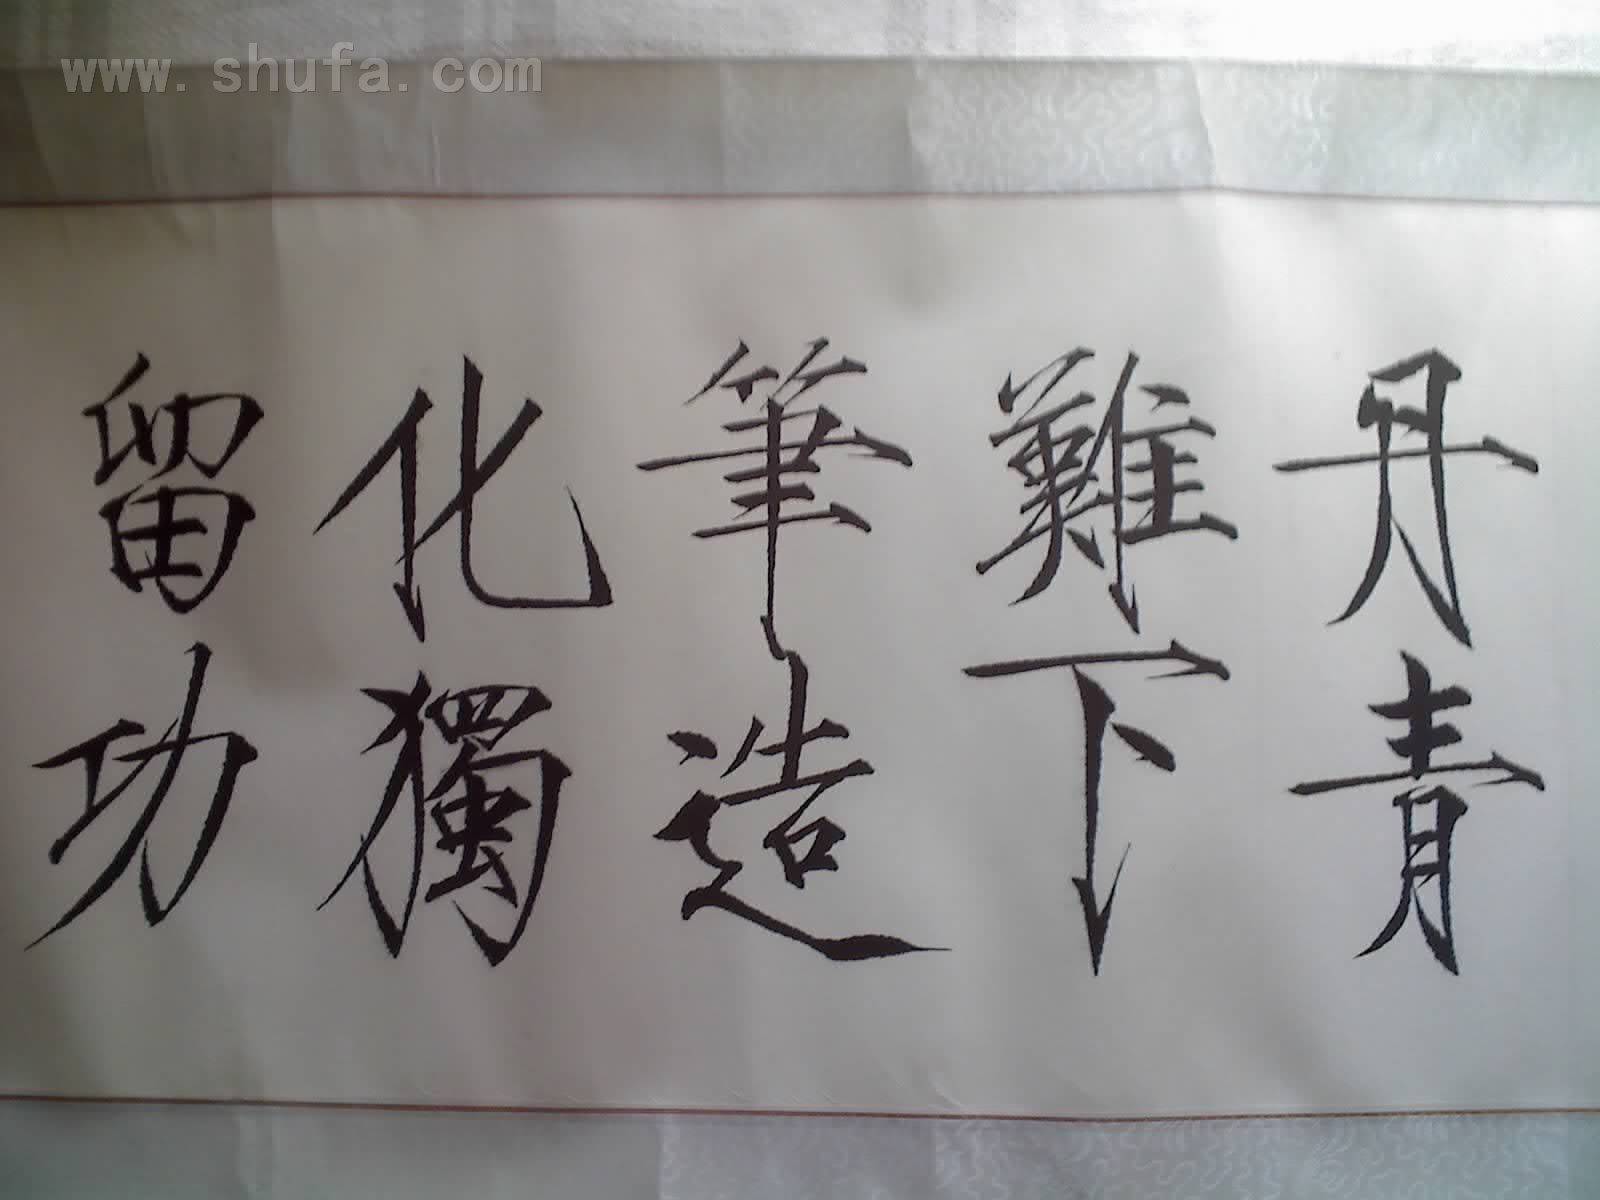 www.shufa.com
丹青
難下
筆造
化獨
留功